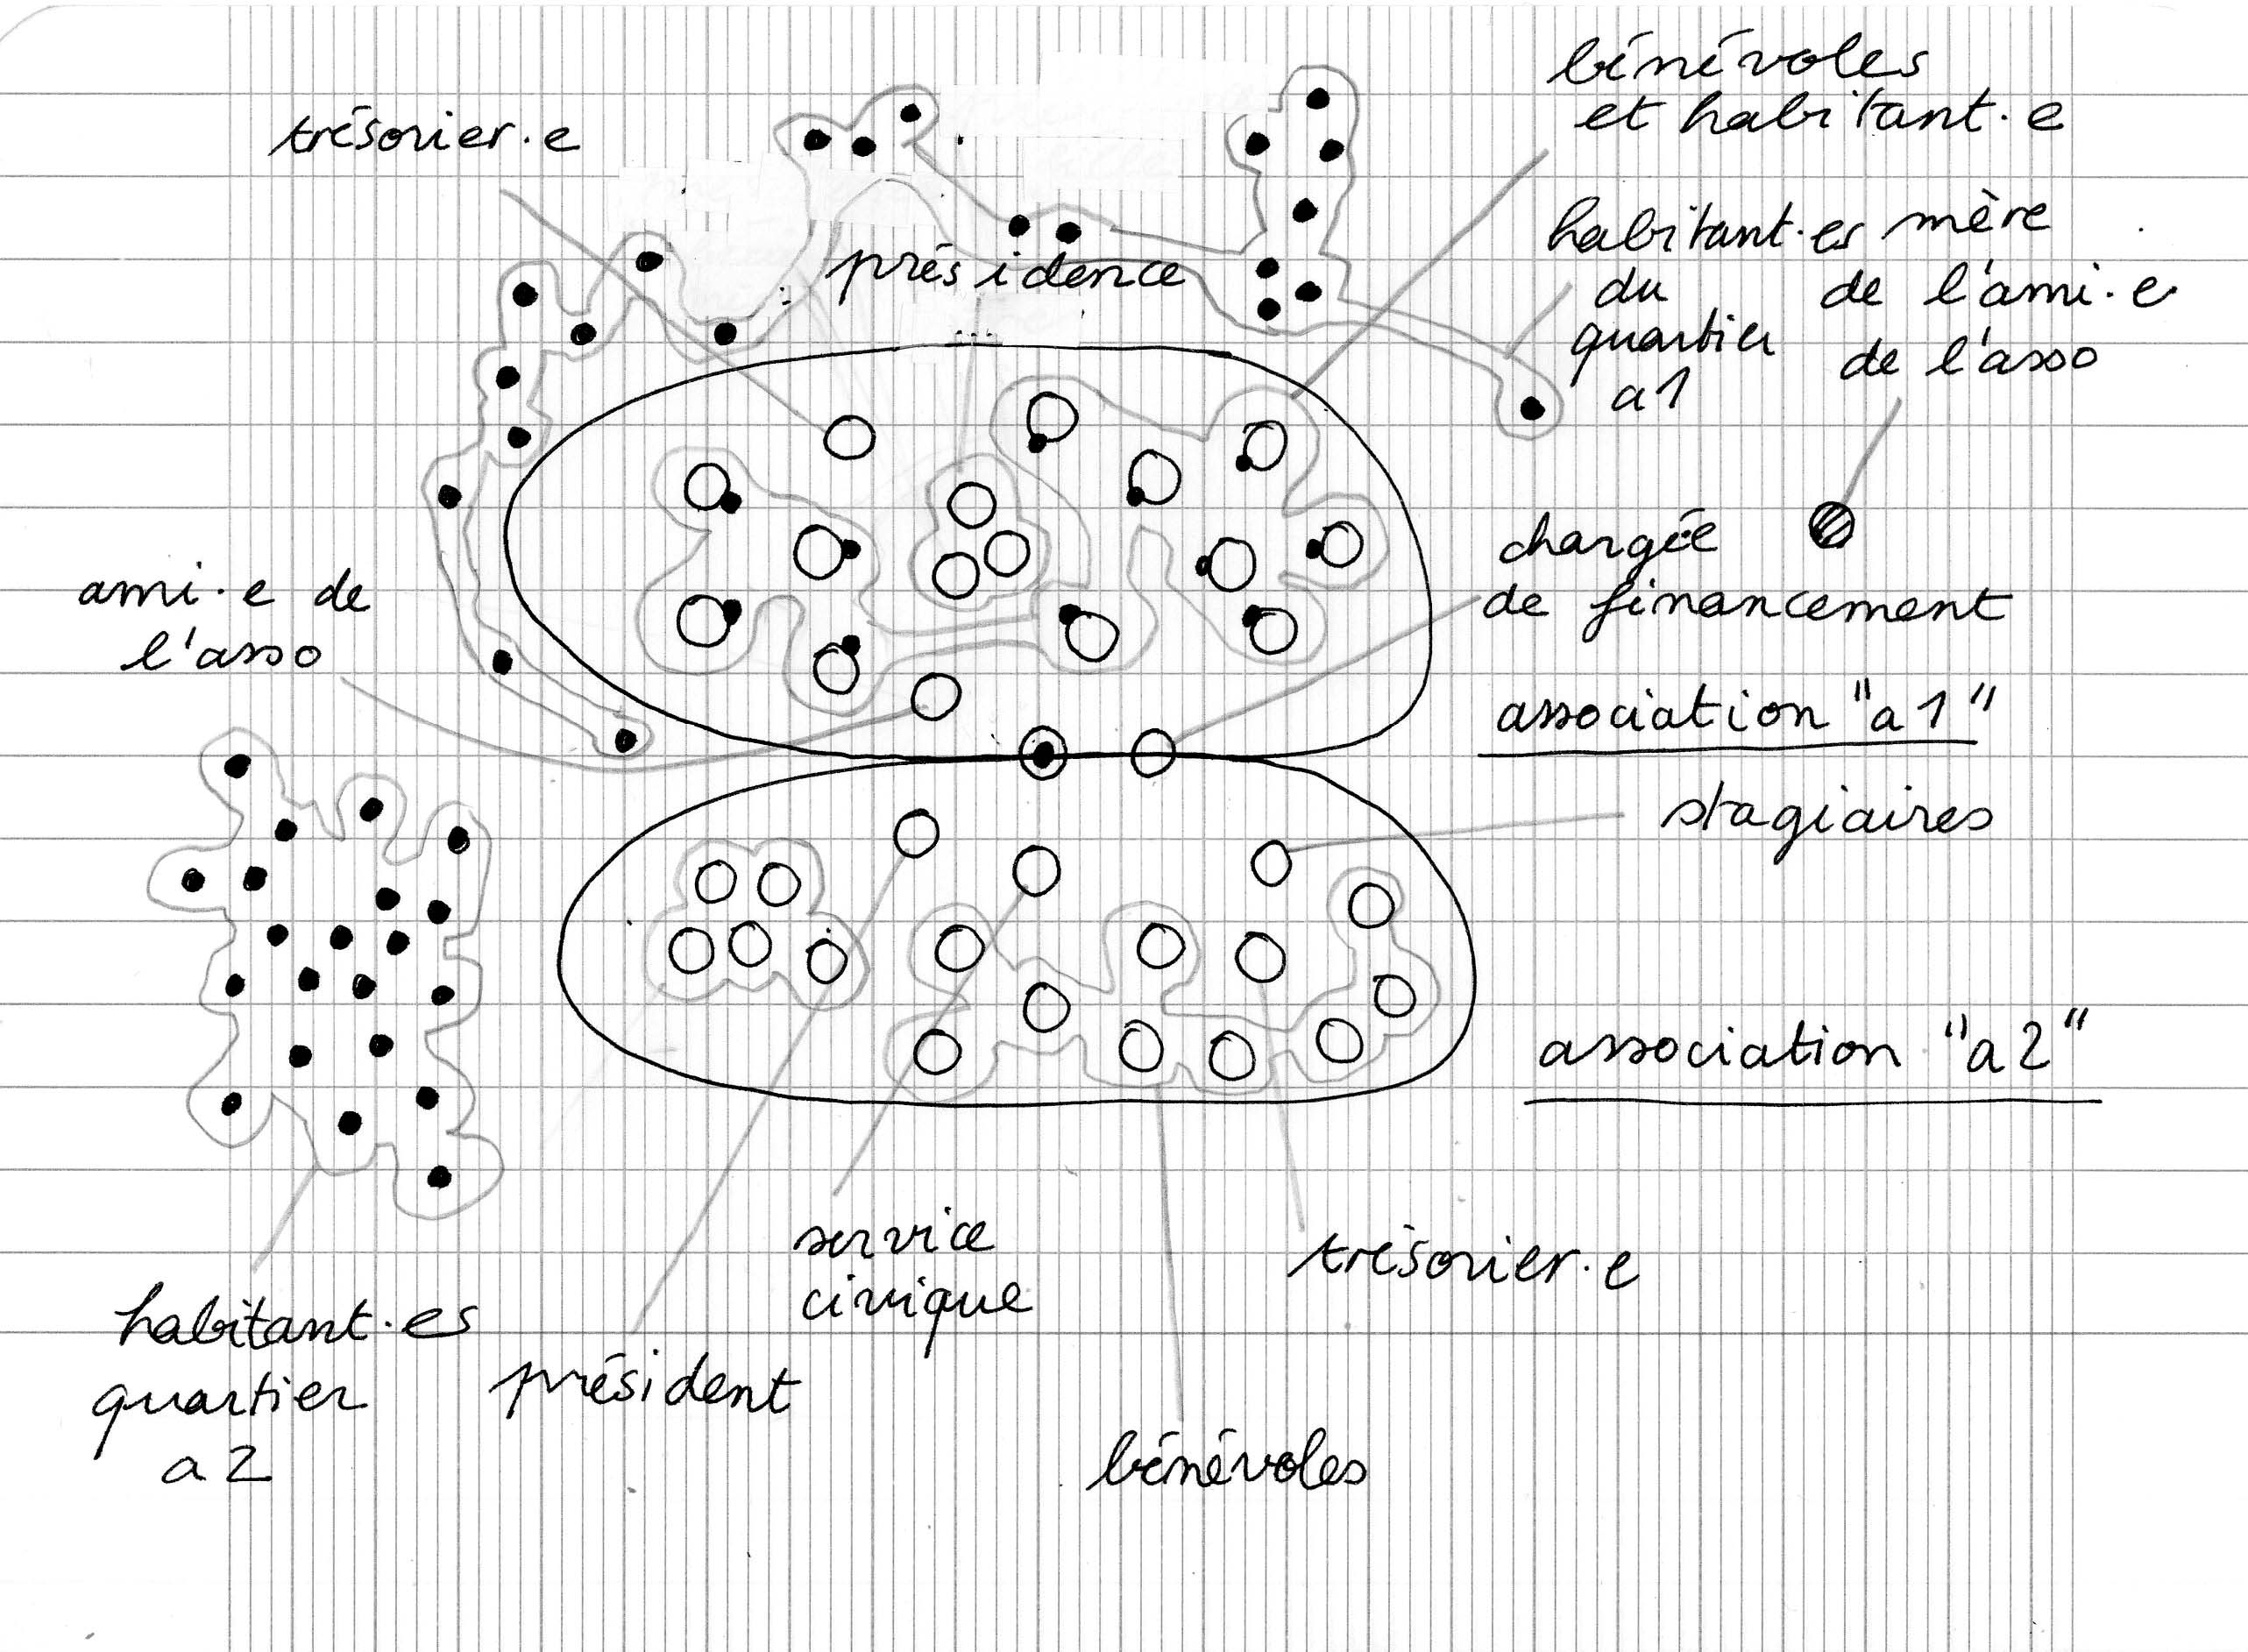 bénévoles
et habitant·e
trésorier·e
habitant·es
du
quartier
a1
mère
de l'ami·e
de l'asso
présidence
...
chargée
de financement
ami·e de
l'asso
association "a1"
stagiaires
association "a2"
service
civique
trésorier·e
habitant·es
quartier
a2
président
bénévoles